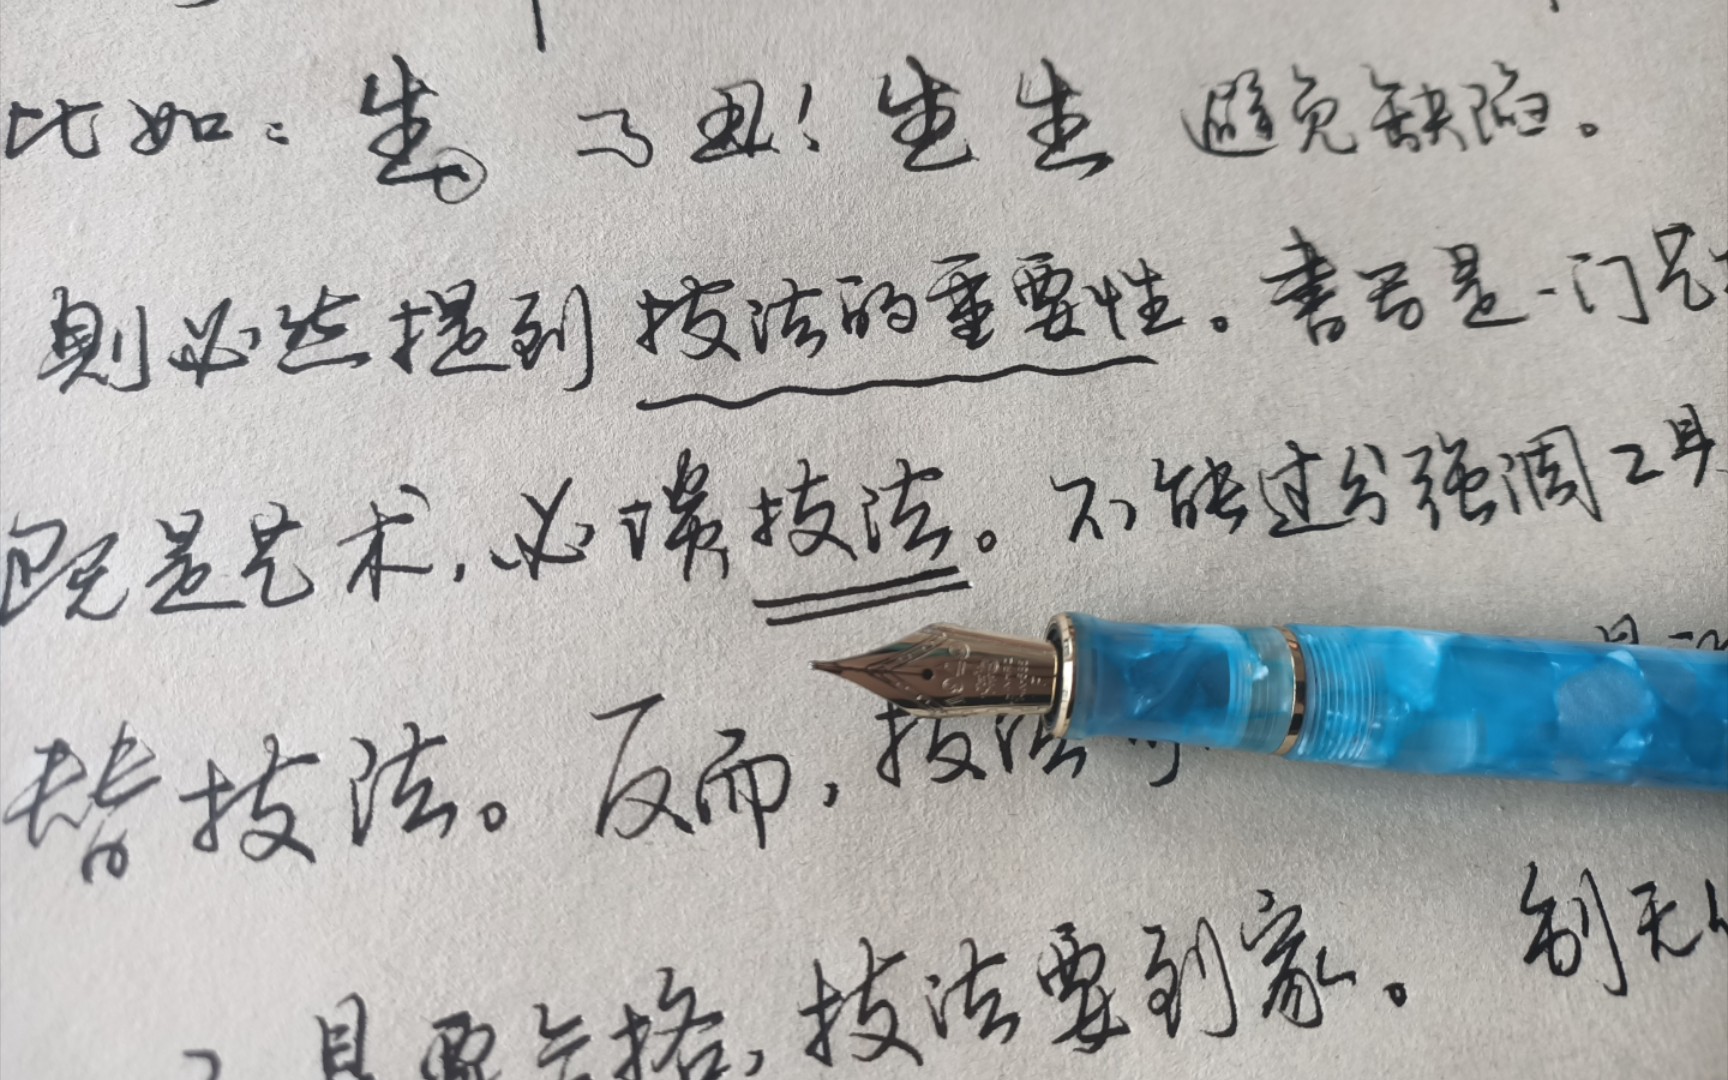 比如：生。了丑！生生 避免缺陷。
则必然提到技法的重要性。書写是一门艺
既是艺术，必谈技法。不能过分强调工具
替技法。反而，技法
工具要合格，技法要到家。 则无